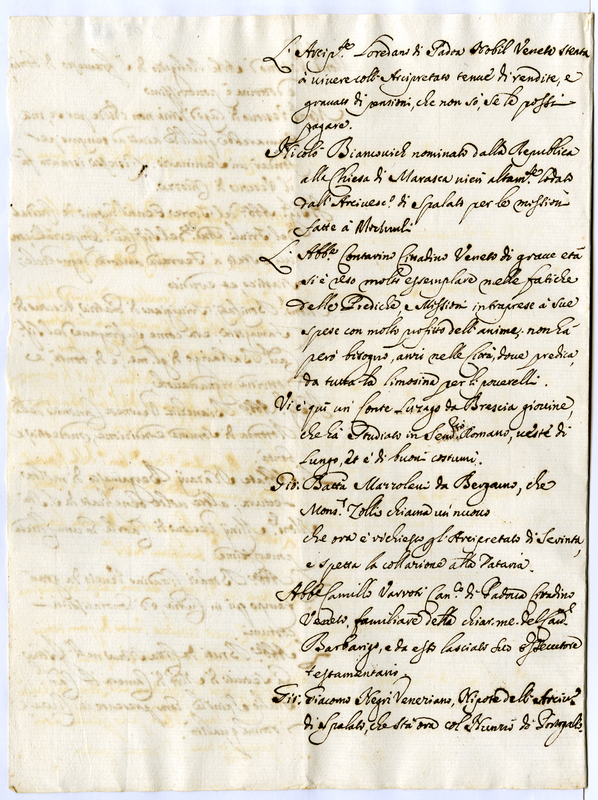 L'Arcip.te Loredano di Padoa Nobil Veneto stenta
à vivere coll'Arcipretato tenue di rendite, e
gravato di pensioni, che non sò, se le possi
pagare.
Nicolò Biancovich nominato dalla Republica
alla Chiesa di Macarsca vien altam.te lodato
dall'Arcivesc.o di Spalato per le missioni
fatte à
L'Abb.e Contarino Cittadino Veneto di grave età
si è reso molto essemplare nelle fatiche
delle Prediche, e Missioni intraprese à sue
spese con molto profitto dell'anime: non hà
però bisogno, anzi nelle Città, dove predica,
dà tutta la limosina per li poverelli.
Vi è quì un Conte Luzago da Brescia giovine,
che hà studiato in Sem.rio Romano, veste di
Lungo, et è di buoni costumi.
Gio: Batta Mazzoleni da Bergamo, che
Mons.r Zolli chiama un nuovo
che ora è richiesto gl'Arcipretato di
e spetta la collazione alla Dataria.
Abb.e Camillo Varroti Can.co di Padova Cittadino
Veneto, familiare della chiar. me. del Card.l
Barbarigo, e da esso lasciato suo Essecutore
testamentario
Gio: Giacomo Negri Veneziano, Nipote dell'Arciv.o
di Spalato, che stà ora col Nunzio di Portogallo.